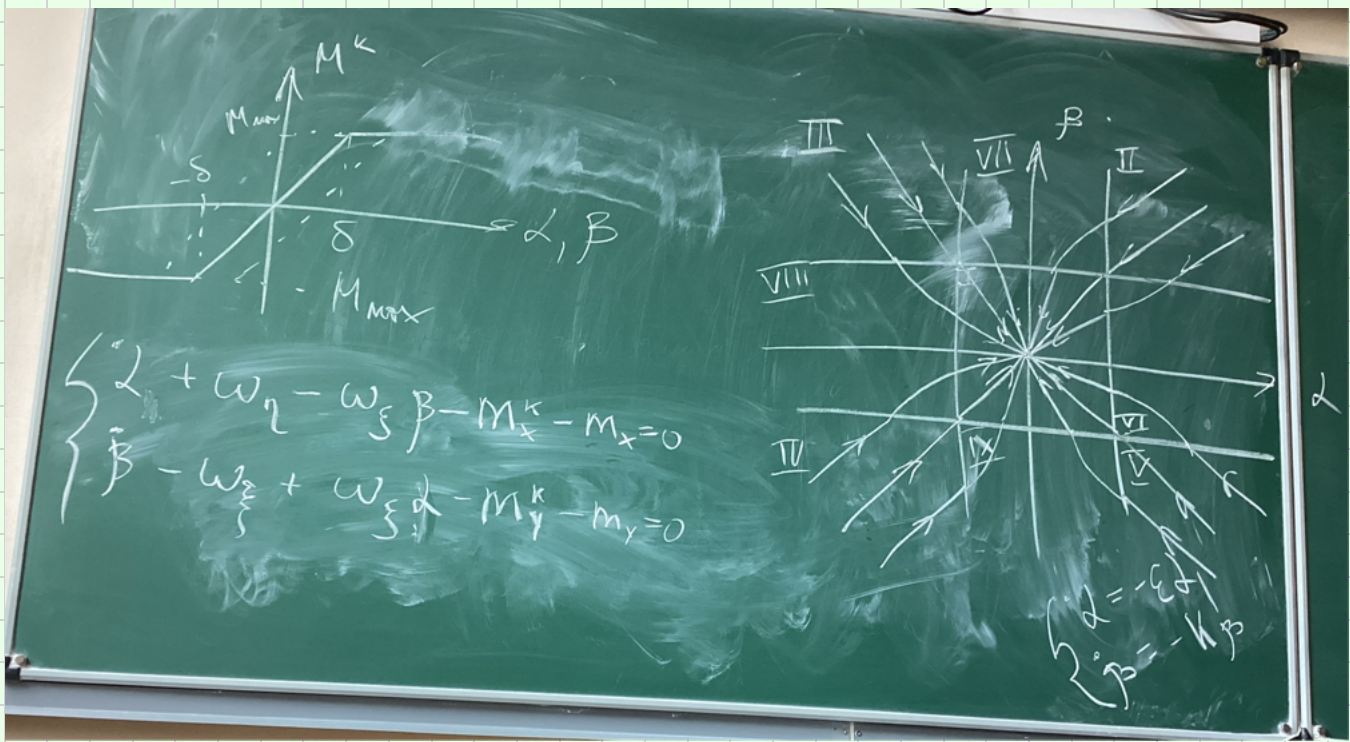 M^K
M_max
-δ
δ
α, β
- M_max
{ α̇ + ω_η - ω_ξ β - M_x^K - m_x = 0
β̇ - ω_ξ + ω_ξ α - M_y^K - m_y = 0
III
VII
β
II
VIII
α
IV
IX
VI
V
{ α̇ = -ξα
β̇ = -Kβ